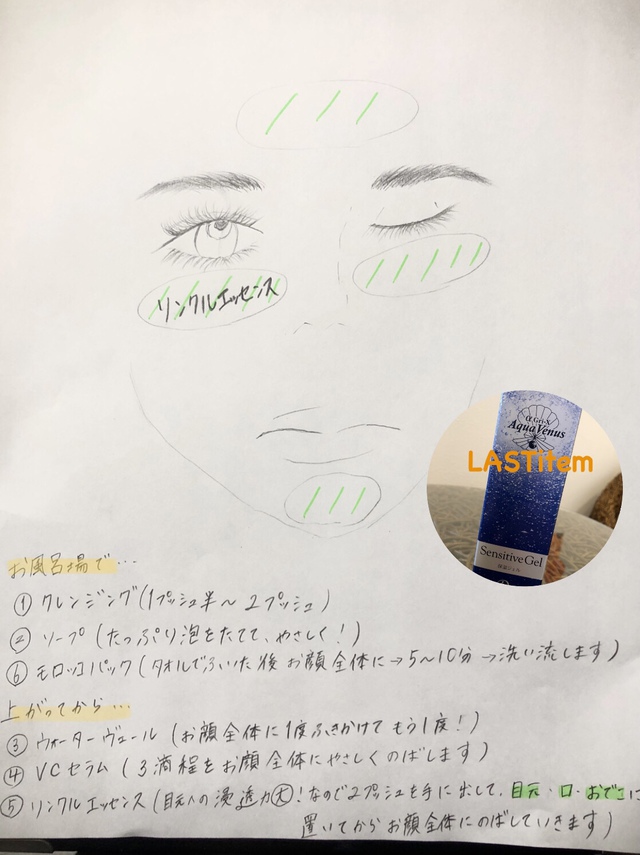 リンクルエッセンス
α Gri-X
Aqua Venus
LASTitem
Sensitive Gel
お風呂場で…
① クレンジング(1プッシュ半〜2プッシュ)
② ソープ(たっぷり泡をたてて、やさしく!)
⑥ モロッコパック(タオルでふいた後お顔全体に→5〜10分→洗い流します)
上がってから…
③ ウォーターヴェール(お顔全体に1度ふきかけてもう1度!)
④ VCセラム(3滴程をお顔全体にやさしくのばします)
⑤ リンクルエッセンス(目元への浸透力大!なので2プッシュを手に出して、目元・口・おでこに
置いてからお顔全体にのばしていきます)